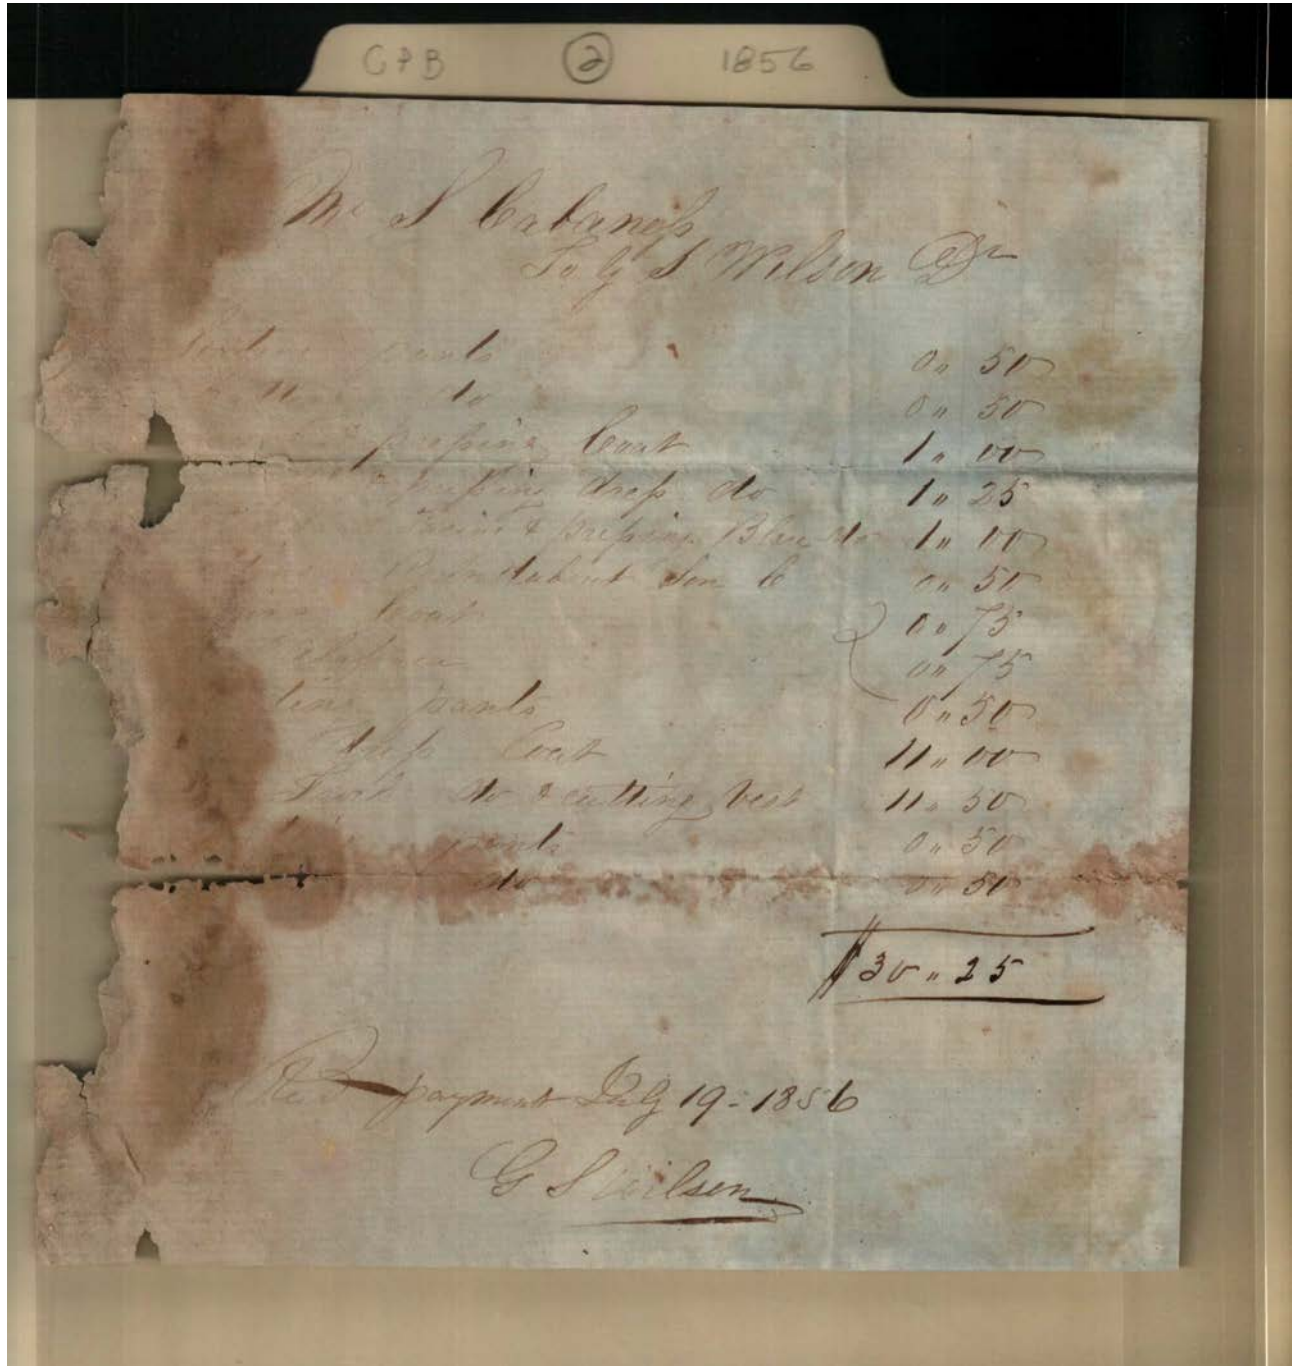 CPB 2 1856
Mr S Cabaness
To G S Wilson Dr
pants 0 " 50
" do 0 " 50
pressing Coat 1 " 00
pressing dress do 1 " 25
& pressing Blue do 1 " 00
Roundabout Son C 0 " 50
Coat 0 " 75
0 " 75
pants 0 " 50
dress Coat 11 " 00
Sack do & cutting vest 11 " 50
pants 0 " 50
do 0 " 50
$30 " 25
Recd payment July 19 = 1856
G S Wilson